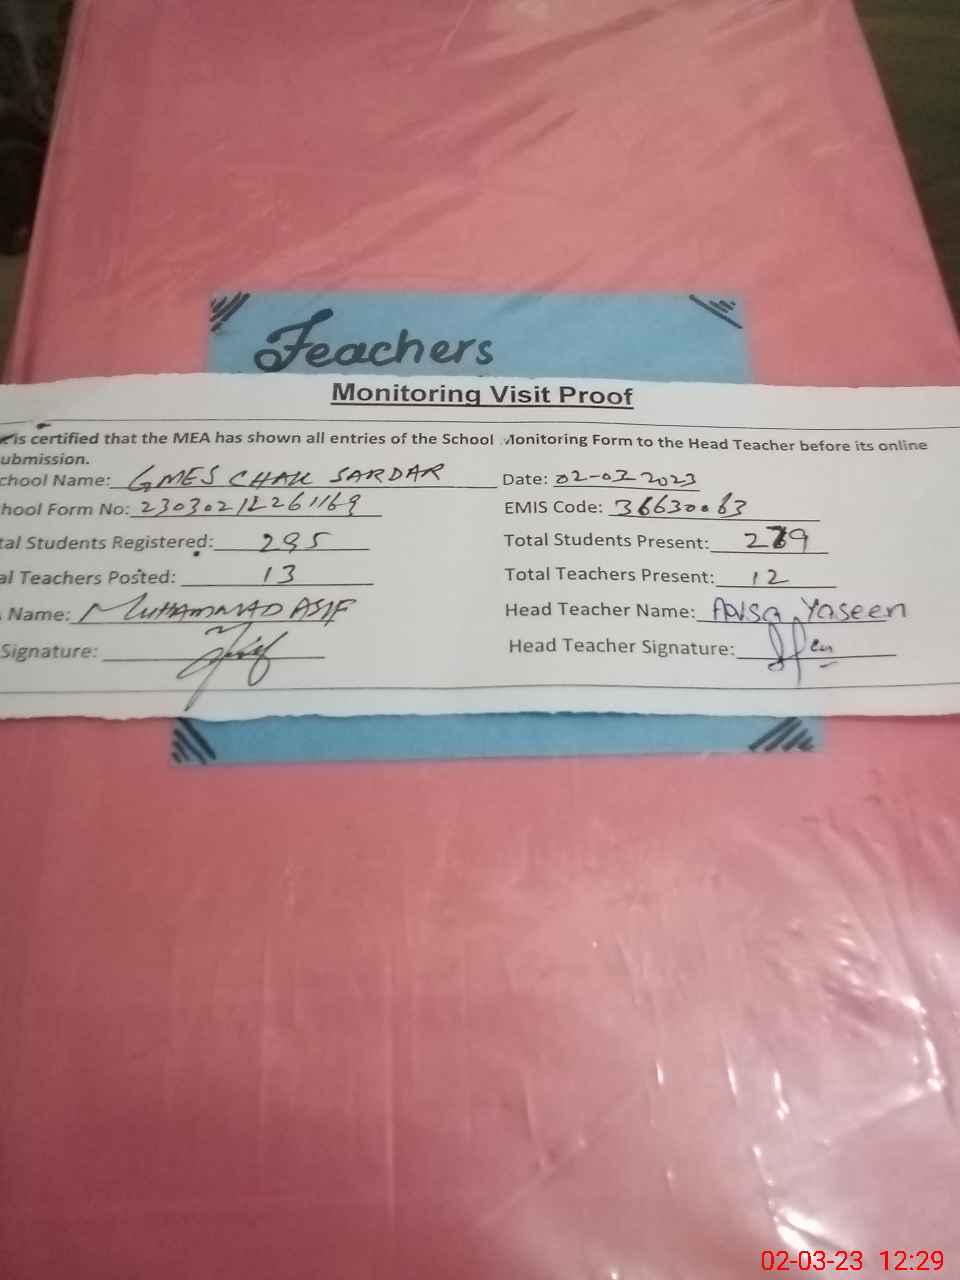 Teachers
Monitoring Visit Proof
is certified that the MEA has shown all entries of the School Monitoring Form to the Head Teacher before its online
ubmission.
chool Name: GMES CHAK SARDAR Date: 02-03-2023
hool Form No: EMIS Code: 36630063
tal Students Registered: 295 Total Students Present: 279
al Teachers Posted: 13 Total Teachers Present: 12
Name: MUHAMMAD ASIF Head Teacher Name: Yaseen
Signature: Head Teacher Signature:
02-03-23 12:29